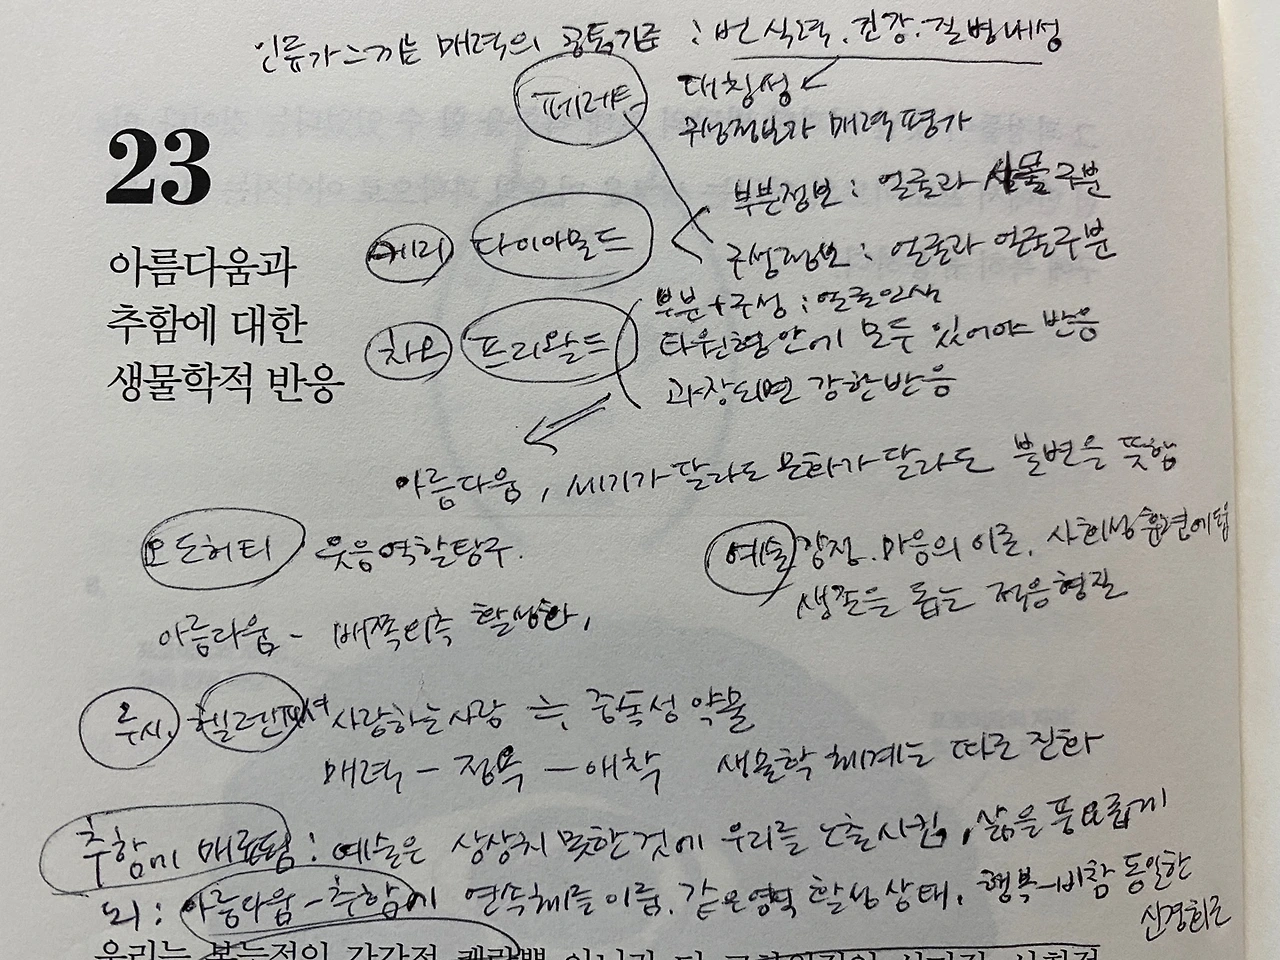 인류가 느끼는 매력의 공통기준 : 번식력, 건강, 질병내성
페레트 대칭성
구성정보과 매력 평가
23
아름다움과
추함에 대한
생물학적 반응
부분정보 : 얼굴과 사물구분
제리 다이아몬드
구성정보 : 얼굴과 얼굴구분
부분+구성 : 얼굴인식
차오 프리왈드
타원형 안에 모두 있어야 반응
과장되면 강한반응
아름다움, 세기가 달라도 문화가 달라도 불변을 뜻함
오도허티 웃음역할탐구.
예술 감정, 마음의 이론, 사회성 훈련에 됨
생존을 돕는 적응형질
아름다움 - 배쪽 활성화,
루시, 헬렌피셔 사랑하는사람 ≒ 중독성 약물
매력 - 정욕 - 애착 생물학 체계는 따로 진화
추함에 매료됨 : 예술은 상상치 못한것에 우리를 노출시킴, 삶을 풍요롭게
뇌 : 아름다움-추함이 연속체를 이룸. 같은영역 활성상태, 행복-비참 동일한
신경회로
우리는 본능적인 감각적